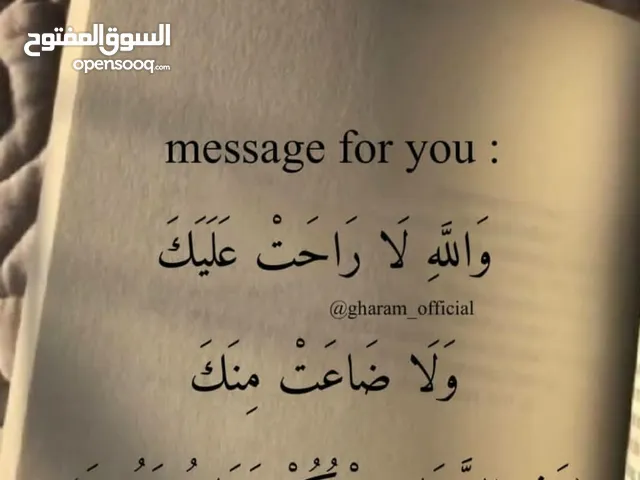 السوق المفتوح
opensooq.com
message for you :
وَاللَّهِ لَا رَاحَتْ عَلَيَكَ
@gharam_official
وَلَا ضَاعَتْ مِنَكَ